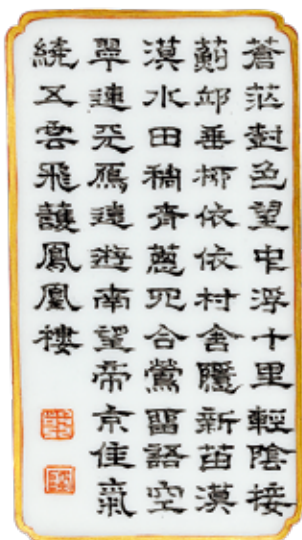 蒼茫樹色望中浮十里輕陰接
薊邱垂柳依依村舍隱新苗漠
漠水田稠青蔥四合鶯留語空
翠連天鴈遠遊南望帝京佳氣
繞五雲飛護鳳凰樓
乾
隆